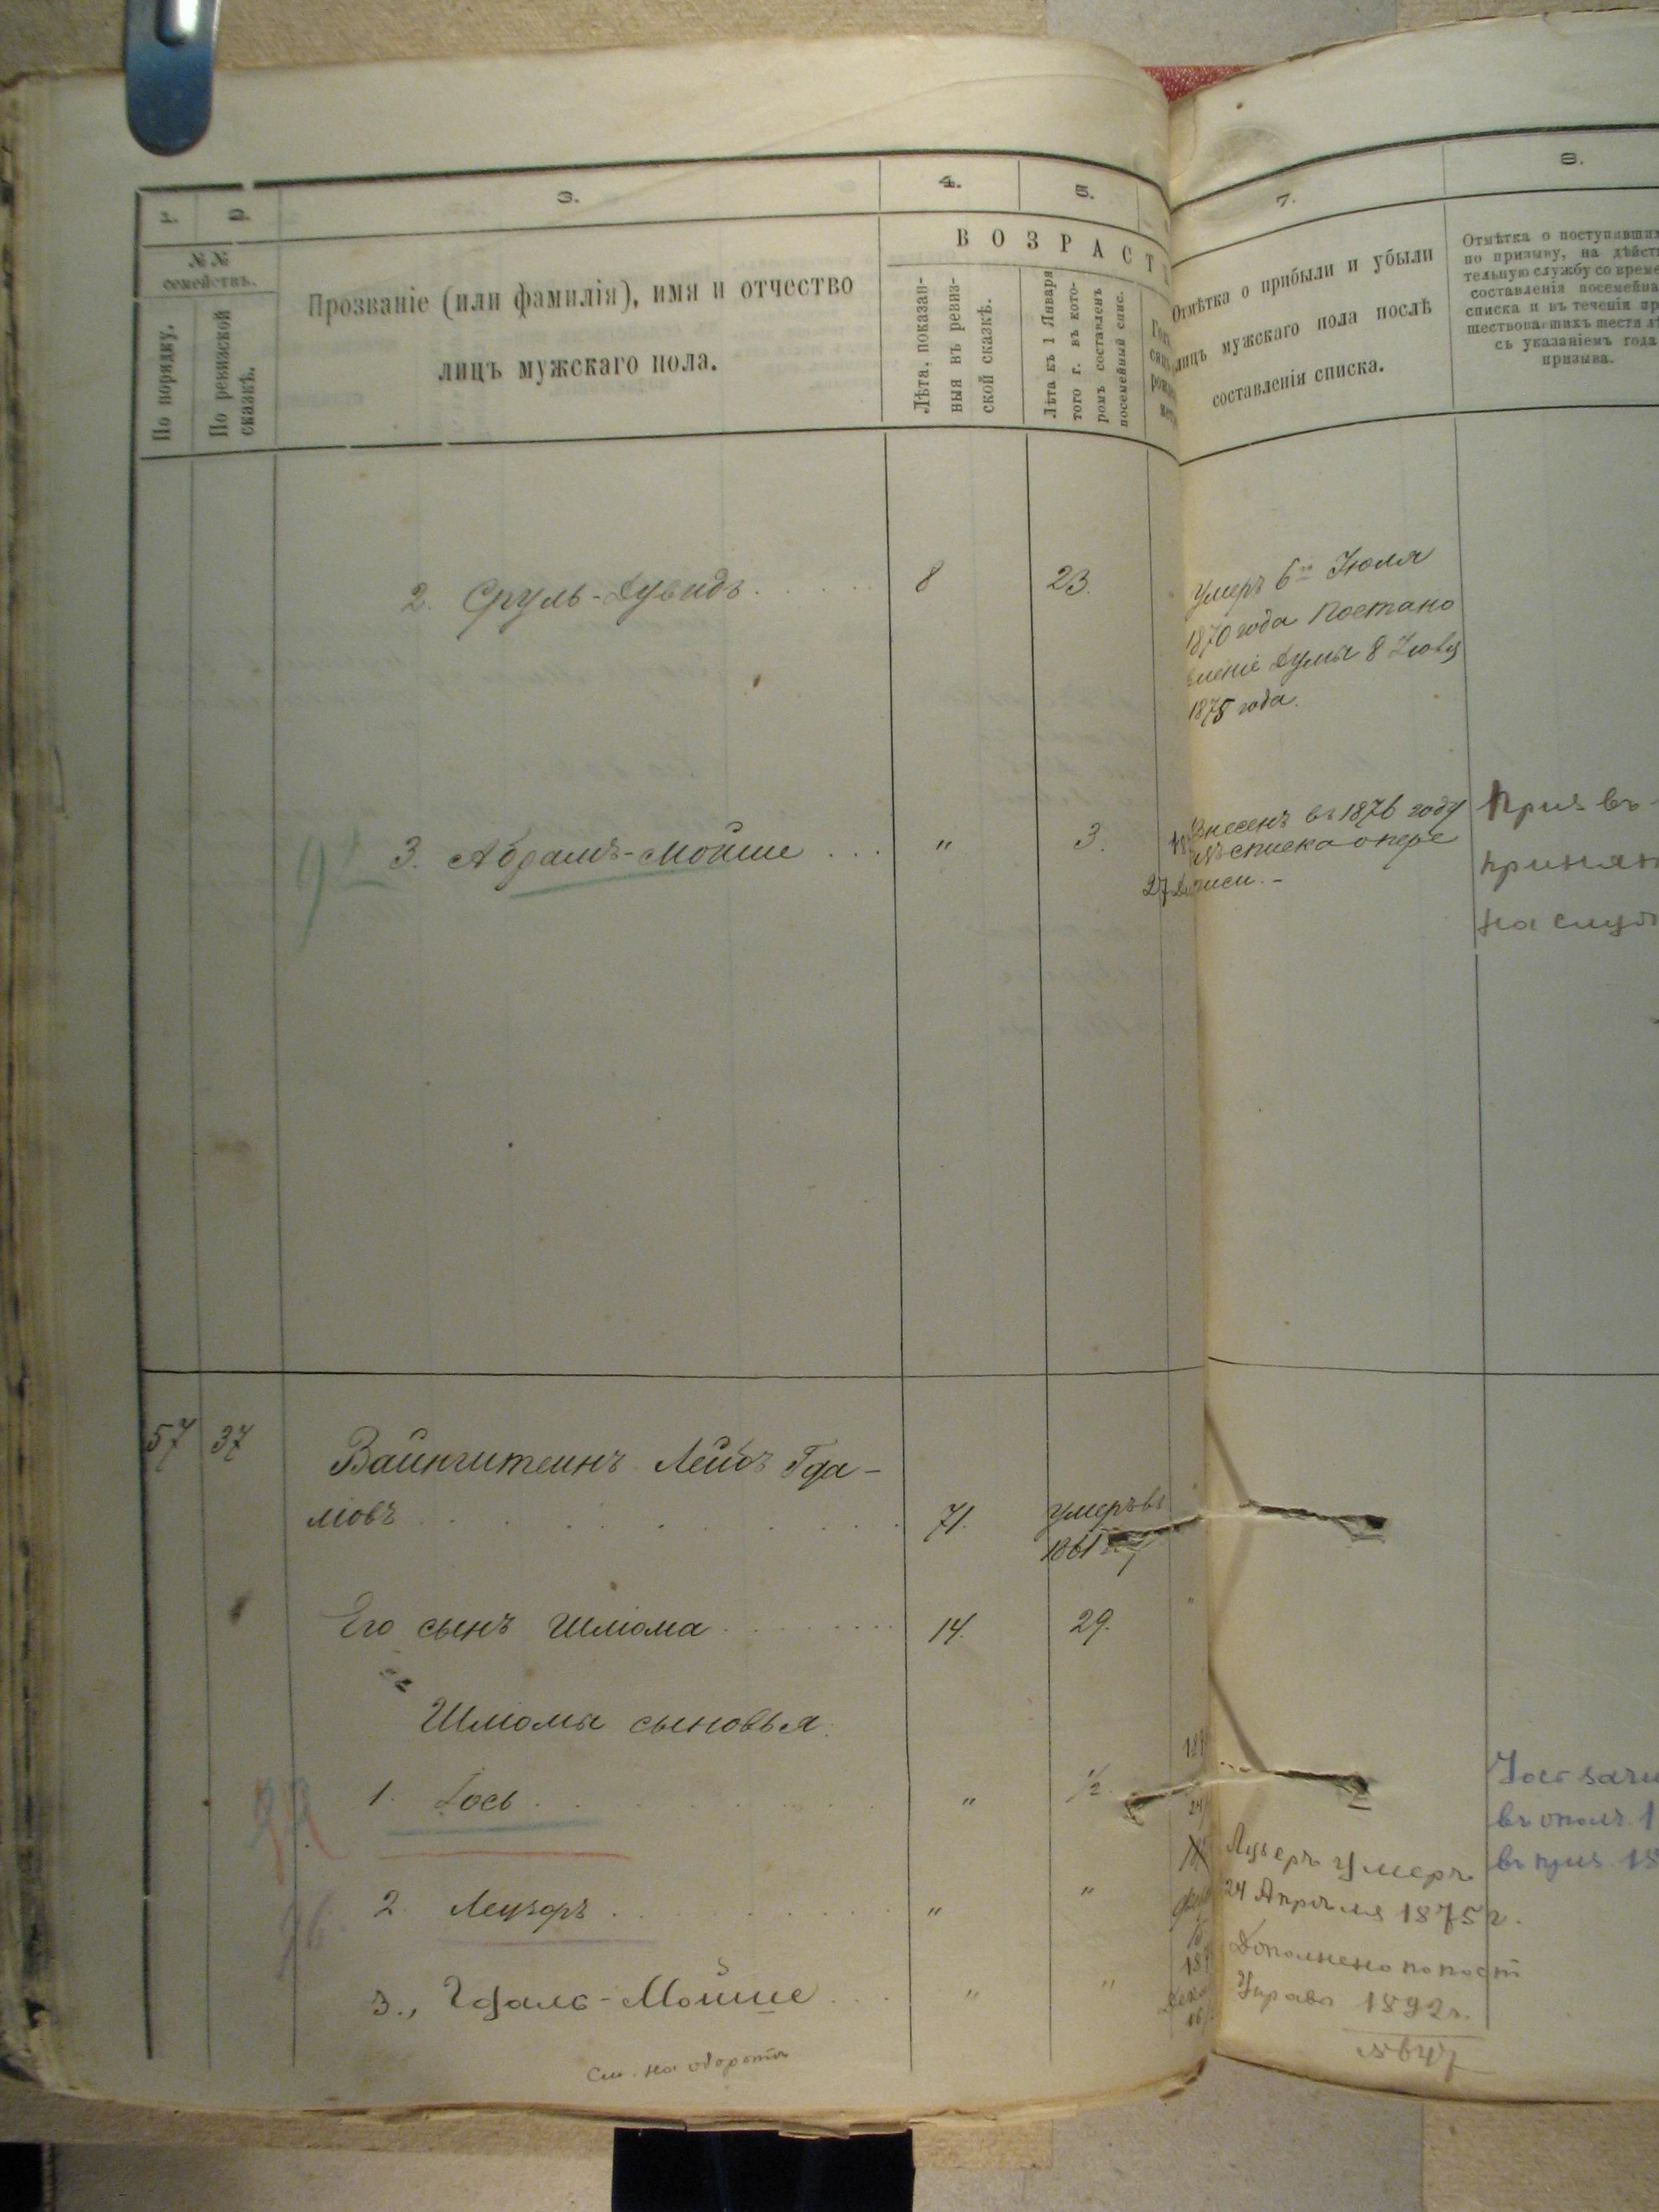 1.
2.
3.
4.
5.
7.
8.
№ №
семействъ.
По порядку.
По ревизской
сказкѣ.
Прозваніе (или фамилія), имя и отчество
лицъ мужскаго пола.
ВОЗРАСТ
Лѣта, показан-
ныя въ ревиз-
ской сказкѣ.
Лѣта къ 1 Января
того г. въ кото-
ромъ составленъ
посемейный спис.
Отмѣтка о прибыли и убыли
лицъ мужскаго пола послѣ
составленія списка.
Отмѣтка о поступивших
по призыву, на дѣйст
тельную службу со време
составленія посемейна
списка и въ теченіи пр
шествовавшихъ шести лѣ
съ указаніемъ года
призыва.
2. Сруль-Дувидъ
8
23.
Умеръ 6го Іюля
1870 года Постано
вленіе Думы 8 Іюля
1875 года.
3. Абрамъ-Мойше
"
3.
Внесенъ въ 1876 году
изъ списка о пере
писи.-
27
Приз въ
принят
на служ
57
37
Вайнштейнъ Лейбъ Гда-
ліовъ
71.
умеръ въ
1861
Его сынъ Шліома
14.
29.
"
Шліомы сыновья:
1. Іось
"
1/2
Іось зачи
въ ополч. 1
въ приз. 18
2. Лейзеръ
"
"
Лузеръ умеръ
24 Апрѣля 1875 г.
3., Гдаль-Мойше
"
"
Дополнено по пост
Управы 1892 г.
См. на оборотѣ